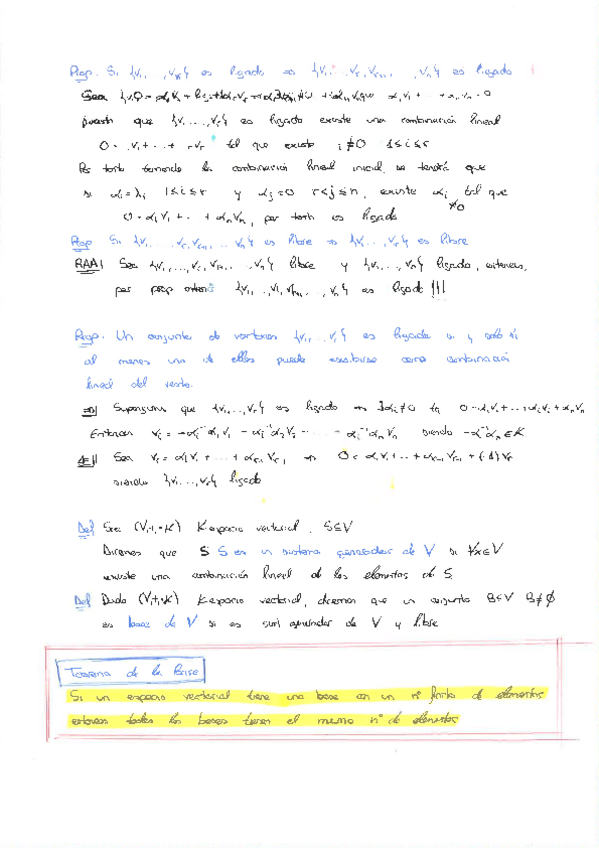 Prop. Si {v₁, ..., vᵣ} es ligado ⇒ {v₁, ..., vᵣ, vᵣ₊₁, ..., vₙ} es ligado
Sea
puesto que {v₁, ..., vᵣ} es ligado existe una combinación lineal
tal que existe ≠0 1≤i≤r
Por tanto tomando la combinación lineal inicial se tendrá que
si αᵢ = λᵢ 1≤i≤r y αⱼ=0 r<j≤n, existe αᵢ tal que
≠0
0 = α₁v₁ + ... + αₙvₙ, por tanto es ligado
Prop Si {v₁, ..., vᵣ, vᵣ₊₁, ..., vₙ} es libre ⇒ {v₁, ..., vᵣ} es libre
RAA| Sea {v₁, ..., vᵣ, vᵣ₊₁, ..., vₙ} libre y {v₁, ..., vᵣ} ligado, entonces,
por prop anterior es ligado !!!
Prop. Un conjunto de vectores {v₁, ..., vᵣ} es ligado si y solo si
al menos uno de ellos puede escribirse como combinación
lineal del resto.
⇒| Supongamos que {v₁, ..., vᵣ} es ligado ⇒ ∃αᵢ≠0 tq 0 = α₁v₁ + ... + αᵢvᵢ + αₙvₙ
Entonces vᵢ = -αᵢ⁻¹α₁v₁ - αᵢ⁻¹α₂v₂ - ... - αᵢ⁻¹αₙvₙ siendo -αᵢ⁻¹αₙ∈K
⇐| Sea vᵣ = α₁v₁ + ... + αᵣ₋₁vᵣ₋₁ ⇒ 0 = α₁v₁ + ... + αᵣ₋₁vᵣ₋₁ + (-1)vᵣ
siendo {v₁, ..., vᵣ} ligado
Def Sea (V,+,·K) K espacio vectorial, S⊆V
Diremos que S es un sistema generador de V si ∀x∈V
existe una combinación lineal de los elementos de S.
Def Dado (V,+,·K) K espacio vectorial, diremos que un conjunto B⊆V B≠∅
es base de V si es generador de V y libre
Teorema de la Base
Si un espacio vectorial tiene una base con un nº finito de elementos
entonces todas las bases tienen el mismo nº de elementos